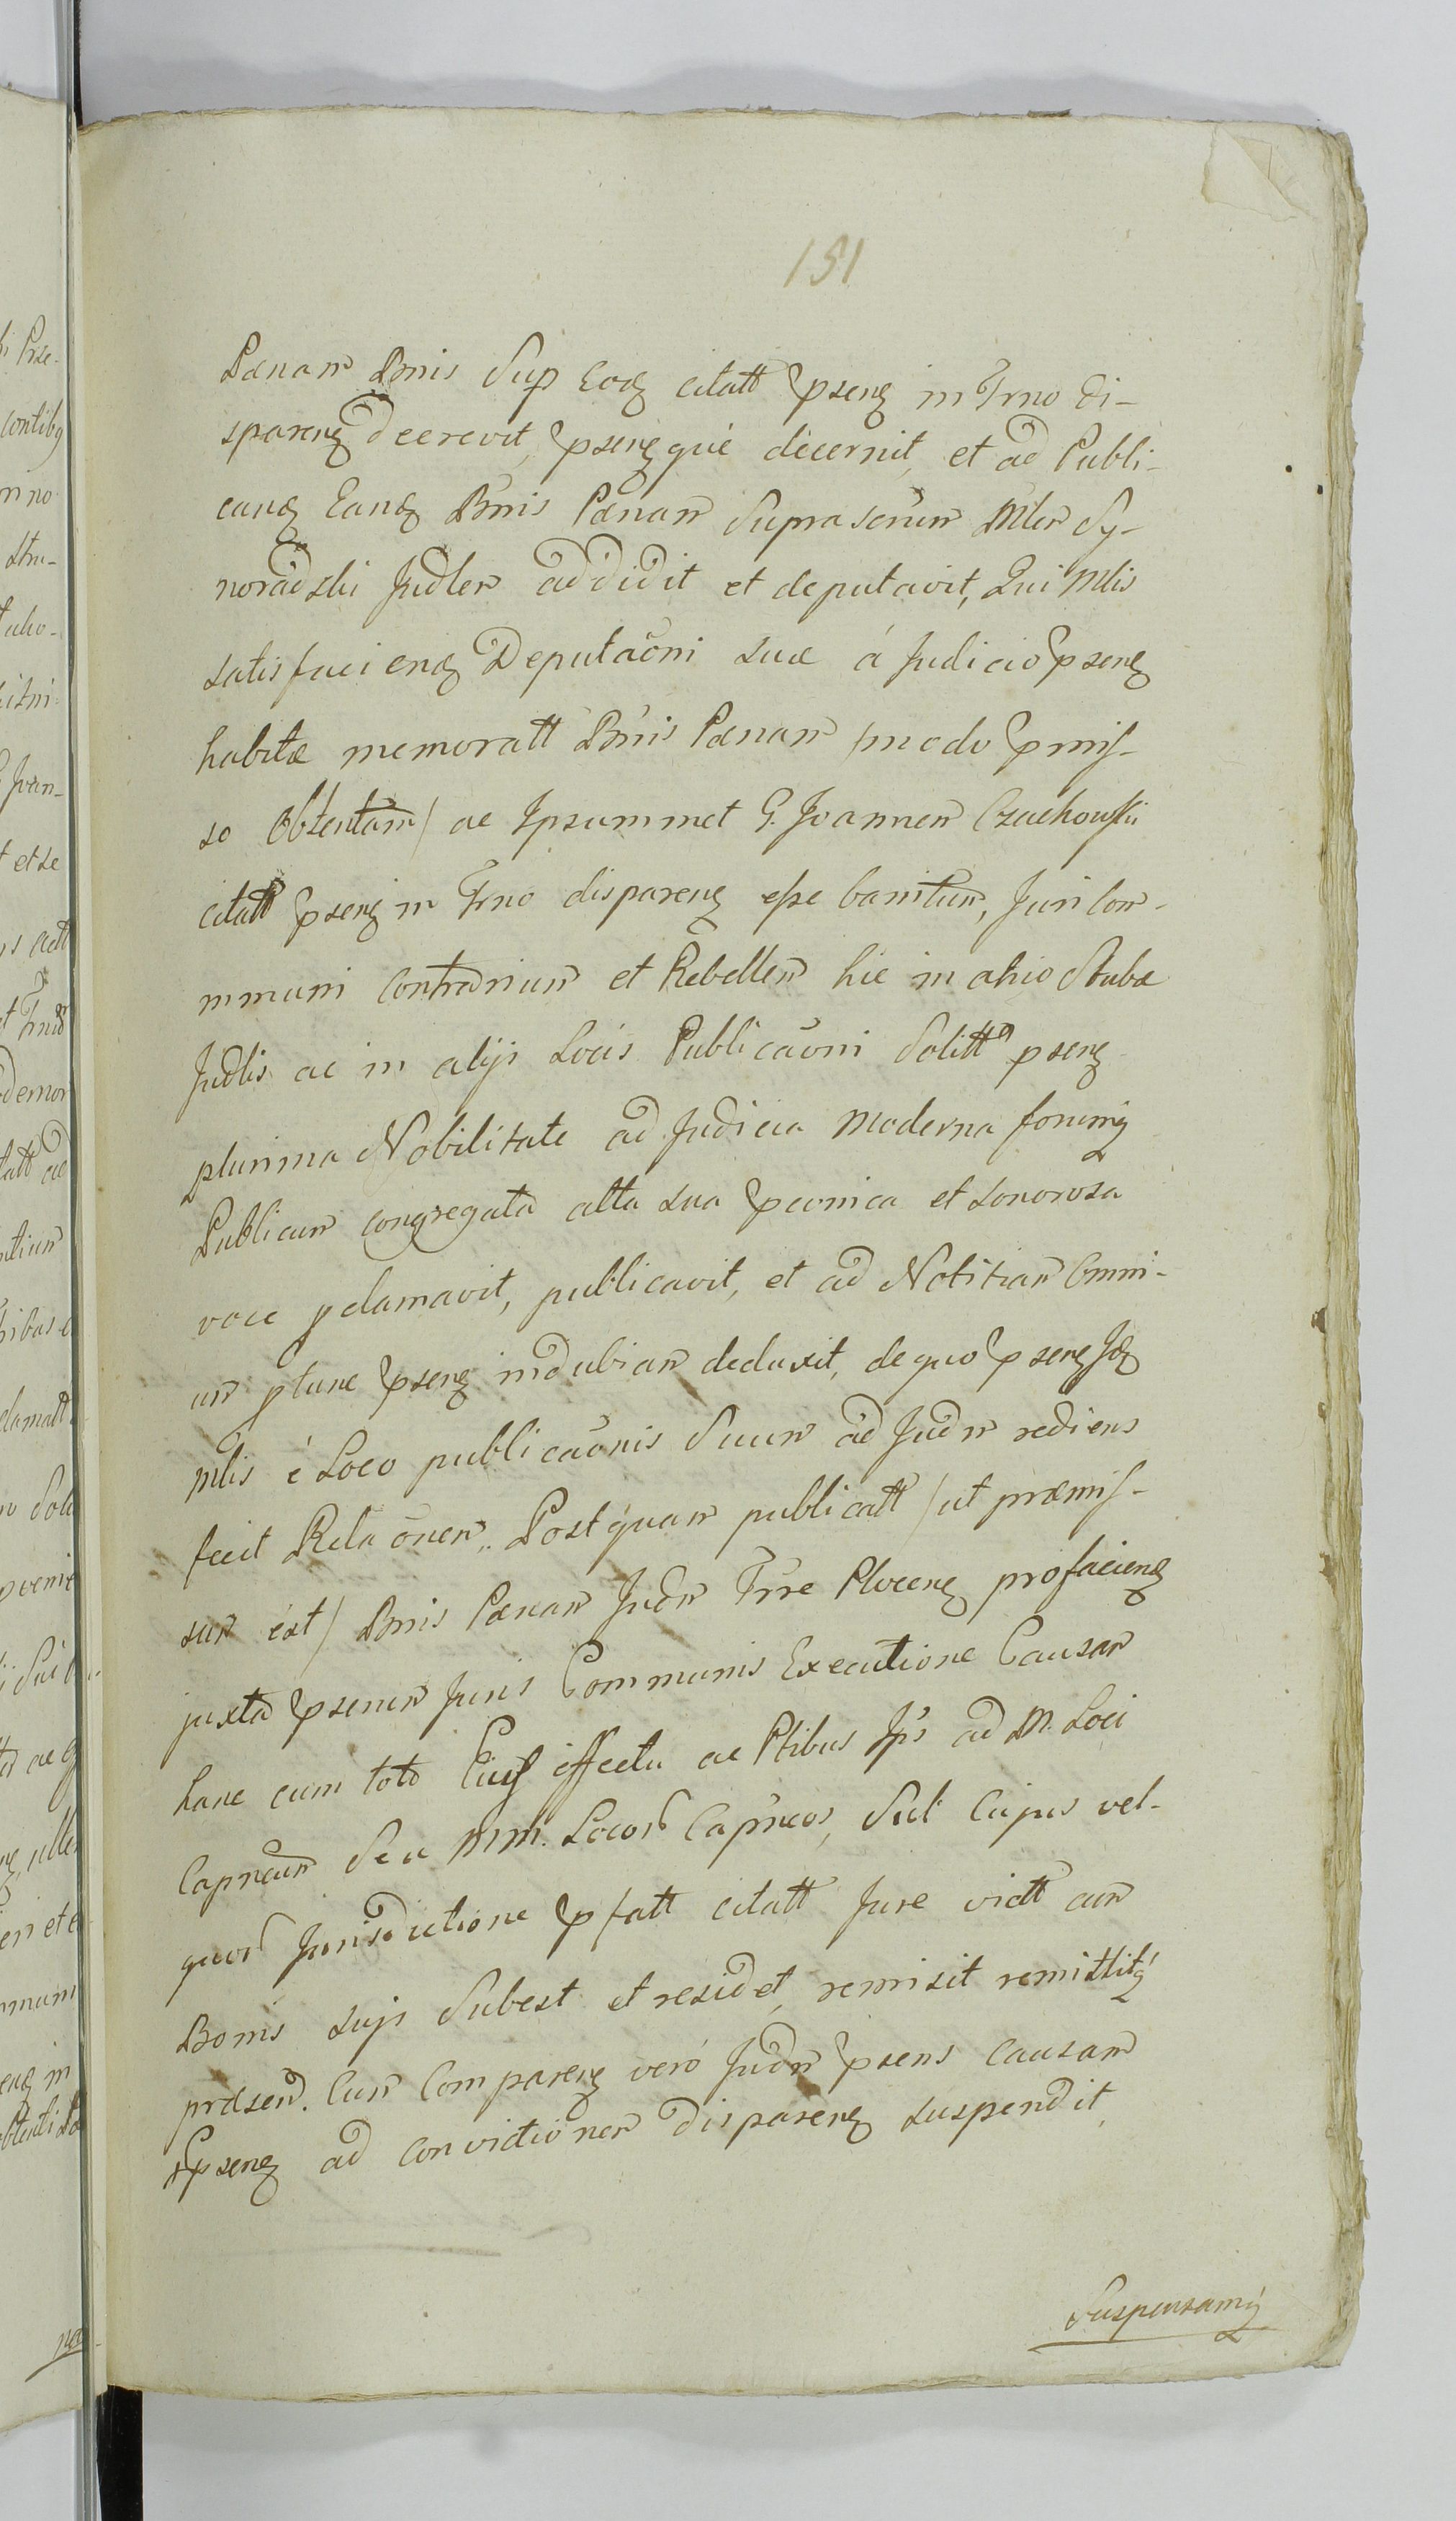 151
Pænam Bnis Sup Eodꝫ citatt pսenꝫ in Trno di-
sparenꝫ decrevit, psenꝫque decernit, et ad Publi-
candꝫ Eandꝫ Bnis Pænam Suprascrum Mlem Sy-
noradzki Judlem addidit et deputavit, Qui Mlis
satisfaciendꝫ Deputaoni suæ á Judicio psenꝫ
habitæ memoratt Bnis Pænam /modo pmis-
so Obtentam/ ac Ipsummet G. Joannem Czachowski
citatt psenꝫ in Trno disparenꝫ esse banitum, Juri Com-
mmuni Contrarium et Rebellem hic in atrio Stubæ
Judlis ac in alijs Locis Publicaoni Solitt psenꝫ
plurima Nobilitate ad Judicia Moderna forumqꝫ
Publicum congregata alta sua pconica et sonorosa
voce pclamavit, publicavit, et ad Notitiam Omni-
um ptunc psenꝫ indubiam deduxit, de quo psenꝫ Idꝫ
Mlis é Loco publicaonis Suum ad Judm rediens
fecit Relaonem. Post quam publicatt /ut præmis-
sum est/ Bnis Pænam Judm Trre Plocenꝫ pro faciendꝫ
juxta psenem Juris Communis Executione Causam
hanc cum toto Eius effectu ac Ptibus Ips ad M. Loci
Capneum Seu MM. Locor Capneos, Sub Cujus vel
quor Jurisdictione pfatt citatt Jure victt cum
Bonis suis Subest et residet, remisit remittitqꝫ
præsen. Cum Comparenꝫ veró Judm psens Causam
psenꝫ ad convictionem disparenꝫ suspendit,
Suspensamqꝫ